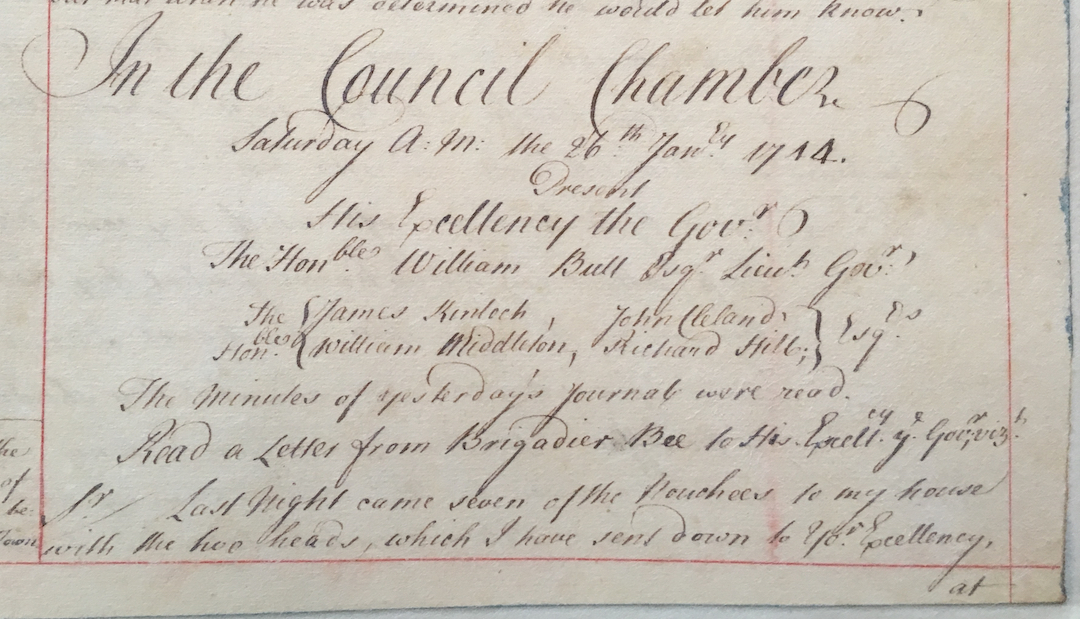 our Man when he was determined he would let him know.
In the Council Chamber
Saturday A: M: the 26.th Jan.ry 1744.
Present
His Excellency the Gov.r
The Hon.ble William Bull Esq.r Lieu.t Gov.r
The Hon.ble { James Kinloch, John Cleland } Esq.rs
William Middleton, Richard Hill;
The Minutes of yesterday's Journal were read.
Read a Letter from Brigadier Bee to His Excell.cy y.e Gov.r viz.t
the
Sr / Last Night came seven of the Nouchees to my house
of
be-
Town
with the two heads, which I have sent down to Yo.r Excellency,
at